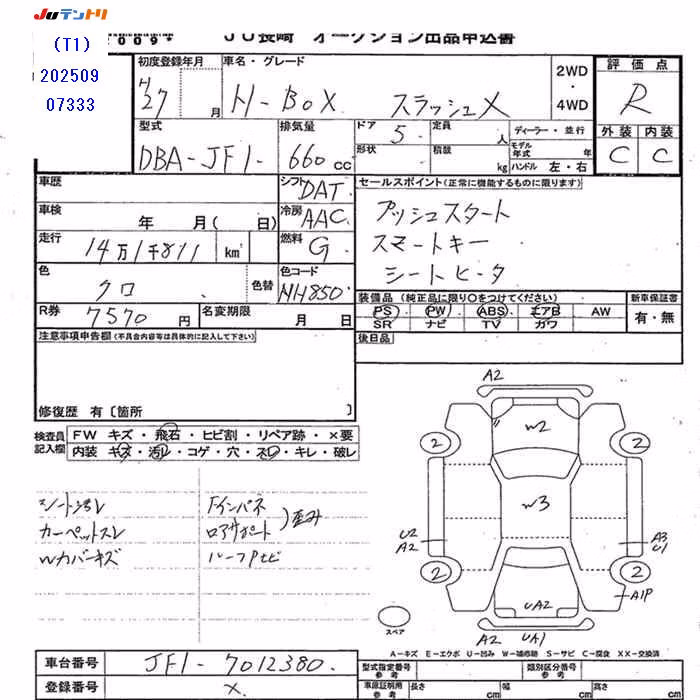 JUテントリ
(T1)
202509
07333
2009*
JU長崎 オークション出品申込書
初度登録年月
H27 月
車名・グレード
N-BOX スラッシュX
2WD
・
4WD
評価点
R
型式
DBA-JF1-
排気量
660 cc
ドア 5
定員 人
形状
積載 kg
ディーラー・並行
モデル年式 年
ハンドル 左・右
外装 内装
C C
車歴
シフト DAT
セールスポイント(正常に機能するものに限ります)
プッシュスタート
スマートキー
シートヒータ
車検 年 月( 日)
冷房 AAC
走行 14万1千811 km
燃料 G
色 クロ
色替
色コード NH850
R券 7570 円
名変期限 月 日
装備品(純正品に限り○をつけてください)
PS PW ABS エアB AW
SR ナビ TV カワ
新車保証書
有・無
後日品
注意事項申告欄(不具合内容等は具体的に記入して下さい)
修復歴 有〔箇所 〕
検査員記入欄
FW キズ・飛石・ヒビ割・リペア跡・×要
内装 キズ・汚レ・コゲ・穴・スレ・キレ・破レ
シート汚レ
カーペットスレ
Wカバーキズ
Fインパネ
ロアサポート
)歪み
ルーフPセヒ
A2
W2
2 2
W3
U2
A2
A3
U1
2 2
A1P
UA2
A2 UA1
スペア
A-キズ E-エクボ U-凹み W-補修跡 S-サビ C-腐食 XX-交換済
車台番号 JF1-7012380.
登録番号 ×.
型式指定番号
参考
類別区分番号
参考
車庫証明用
参考
長さ cm
幅 cm
高さ cm